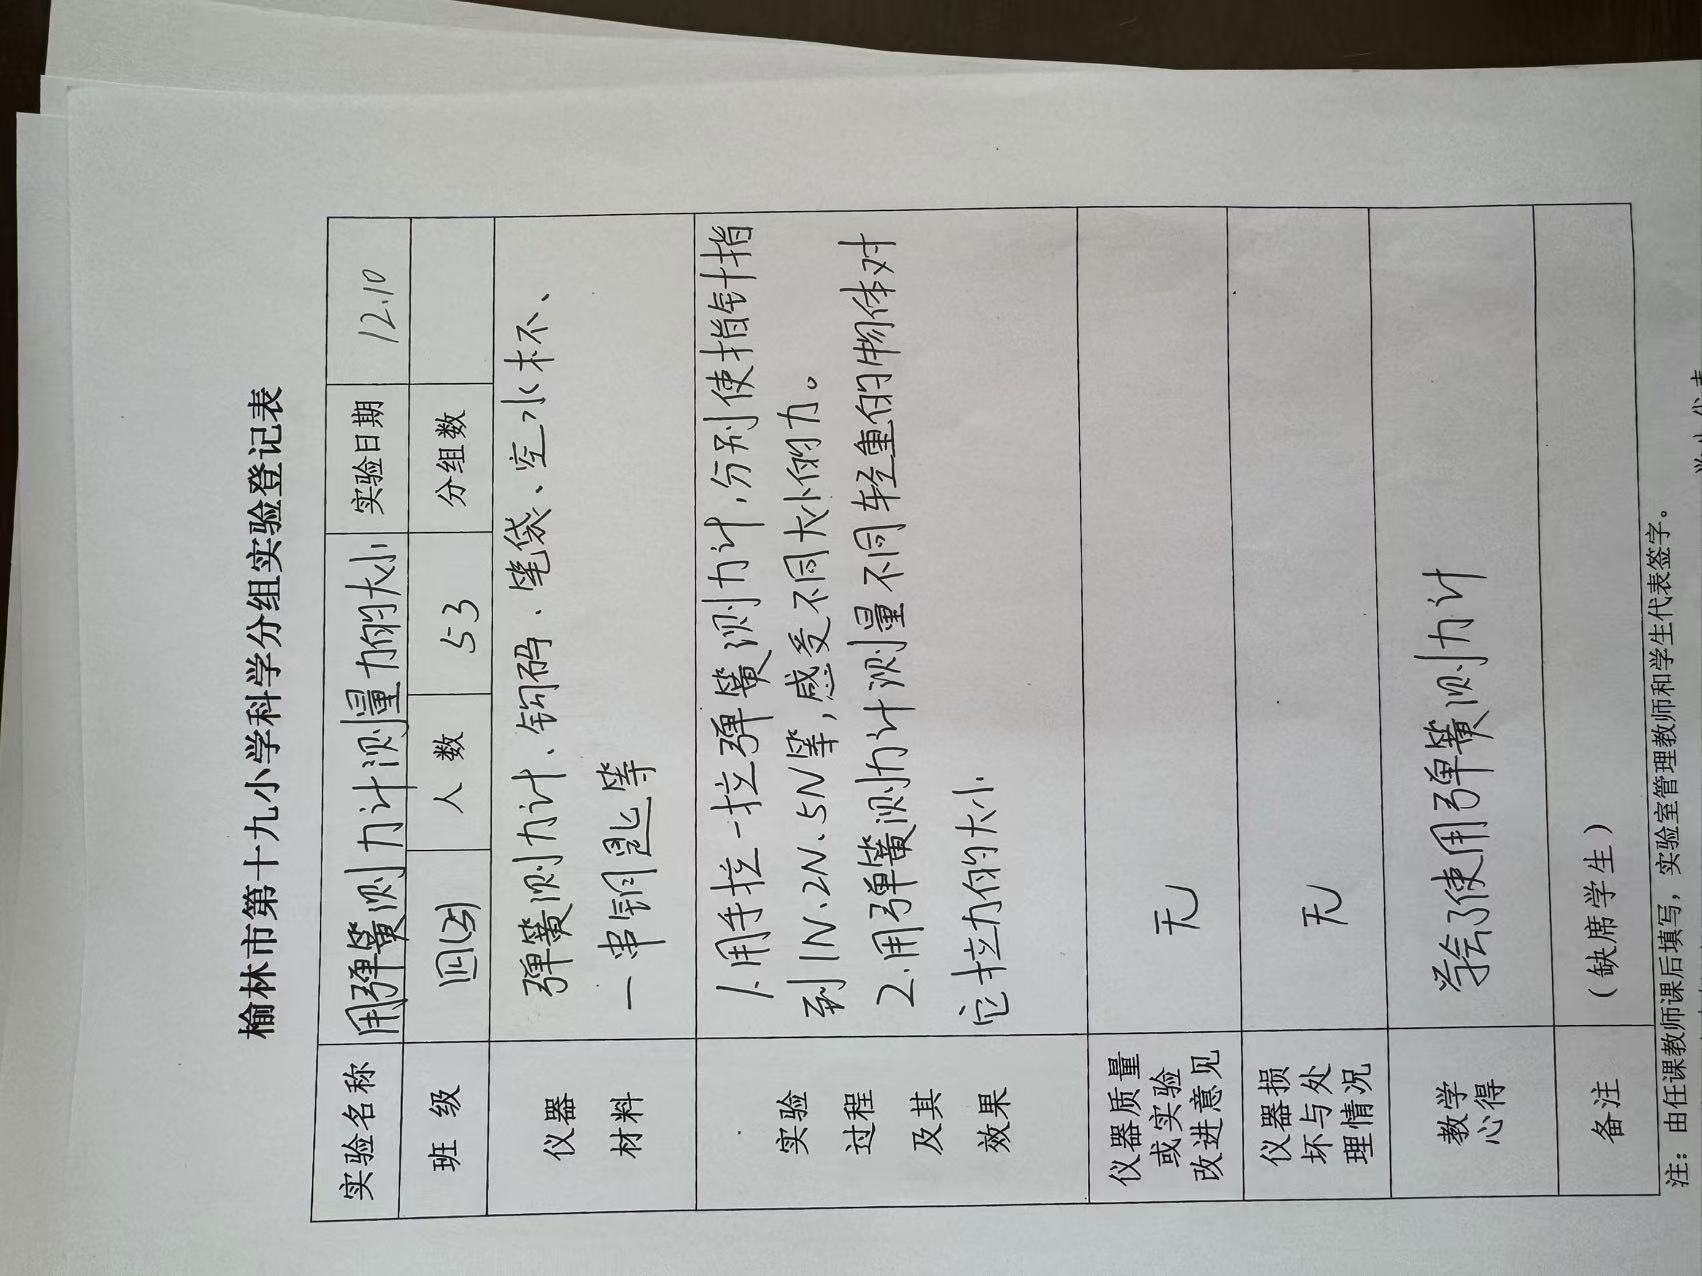 榆林市第十九小学科学分组实验登记表
实验名称 用弹簧测力计测量力的大小 实验日期 12.10
班 级 人 数 53 分组数
仪器
材料
弹簧测力计、钩码、笔袋、空水杯、
一串钥匙等
实验
过程
及其
效果
1.用手拉一拉弹簧测力计,分别使指针指
到1N、2N、5N等,感受不同大小的力。
2.用弹簧测力计测量不同轻重的物体对
它拉力的大小
仪器质量
或实验
改进意见
无
仪器损
坏与处
理情况
无
教学
心得
学会了使用弹簧测力计
备注 (缺席学生)
注:由任课教师课后填写,实验室管理教师和学生代表签字。